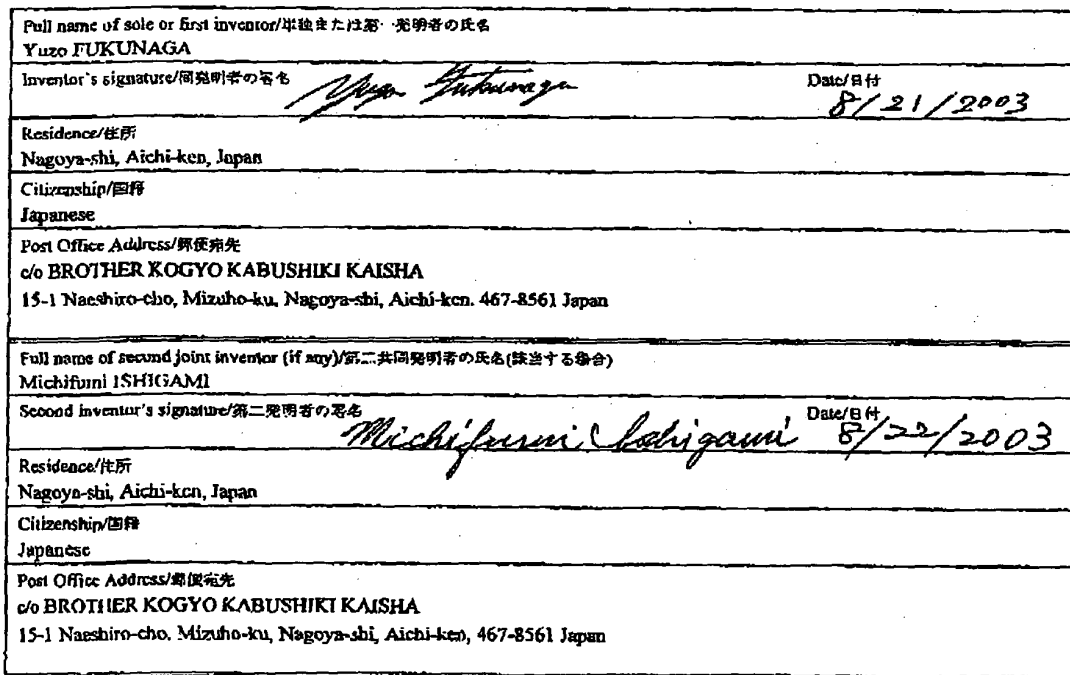 Full name of sole or first inventor/単独または第一発明者の氏名
Yuzo FUKUNAGA
Inventor's signature/同発明者の署名 Yuzo Fukunaga Date/日付
8/21/2003
Residence/住所
Nagoya-shi, Aichi-ken, Japan
Citizenship/国籍
Japanese
Post Office Address/郵便宛先
c/o BROTHER KOGYO KABUSHIKI KAISHA
15-1 Naeshiro-cho, Mizuho-ku, Nagoya-shi, Aichi-ken. 467-8561 Japan
Full name of second joint inventor (if any)/第二共同発明者の氏名(該当する場合)
Michifumi ISHIGAMI
Second inventor's signature/第二発明者の署名 Michifumi Ishigami Date/日付
8/22/2003
Residence/住所
Nagoya-shi, Aichi-ken, Japan
Citizenship/国籍
Japanese
Post Office Address/郵便宛先
c/o BROTHER KOGYO KABUSHIKI KAISHA
15-1 Naeshiro-cho, Mizuho-ku, Nagoya-shi, Aichi-ken, 467-8561 Japan